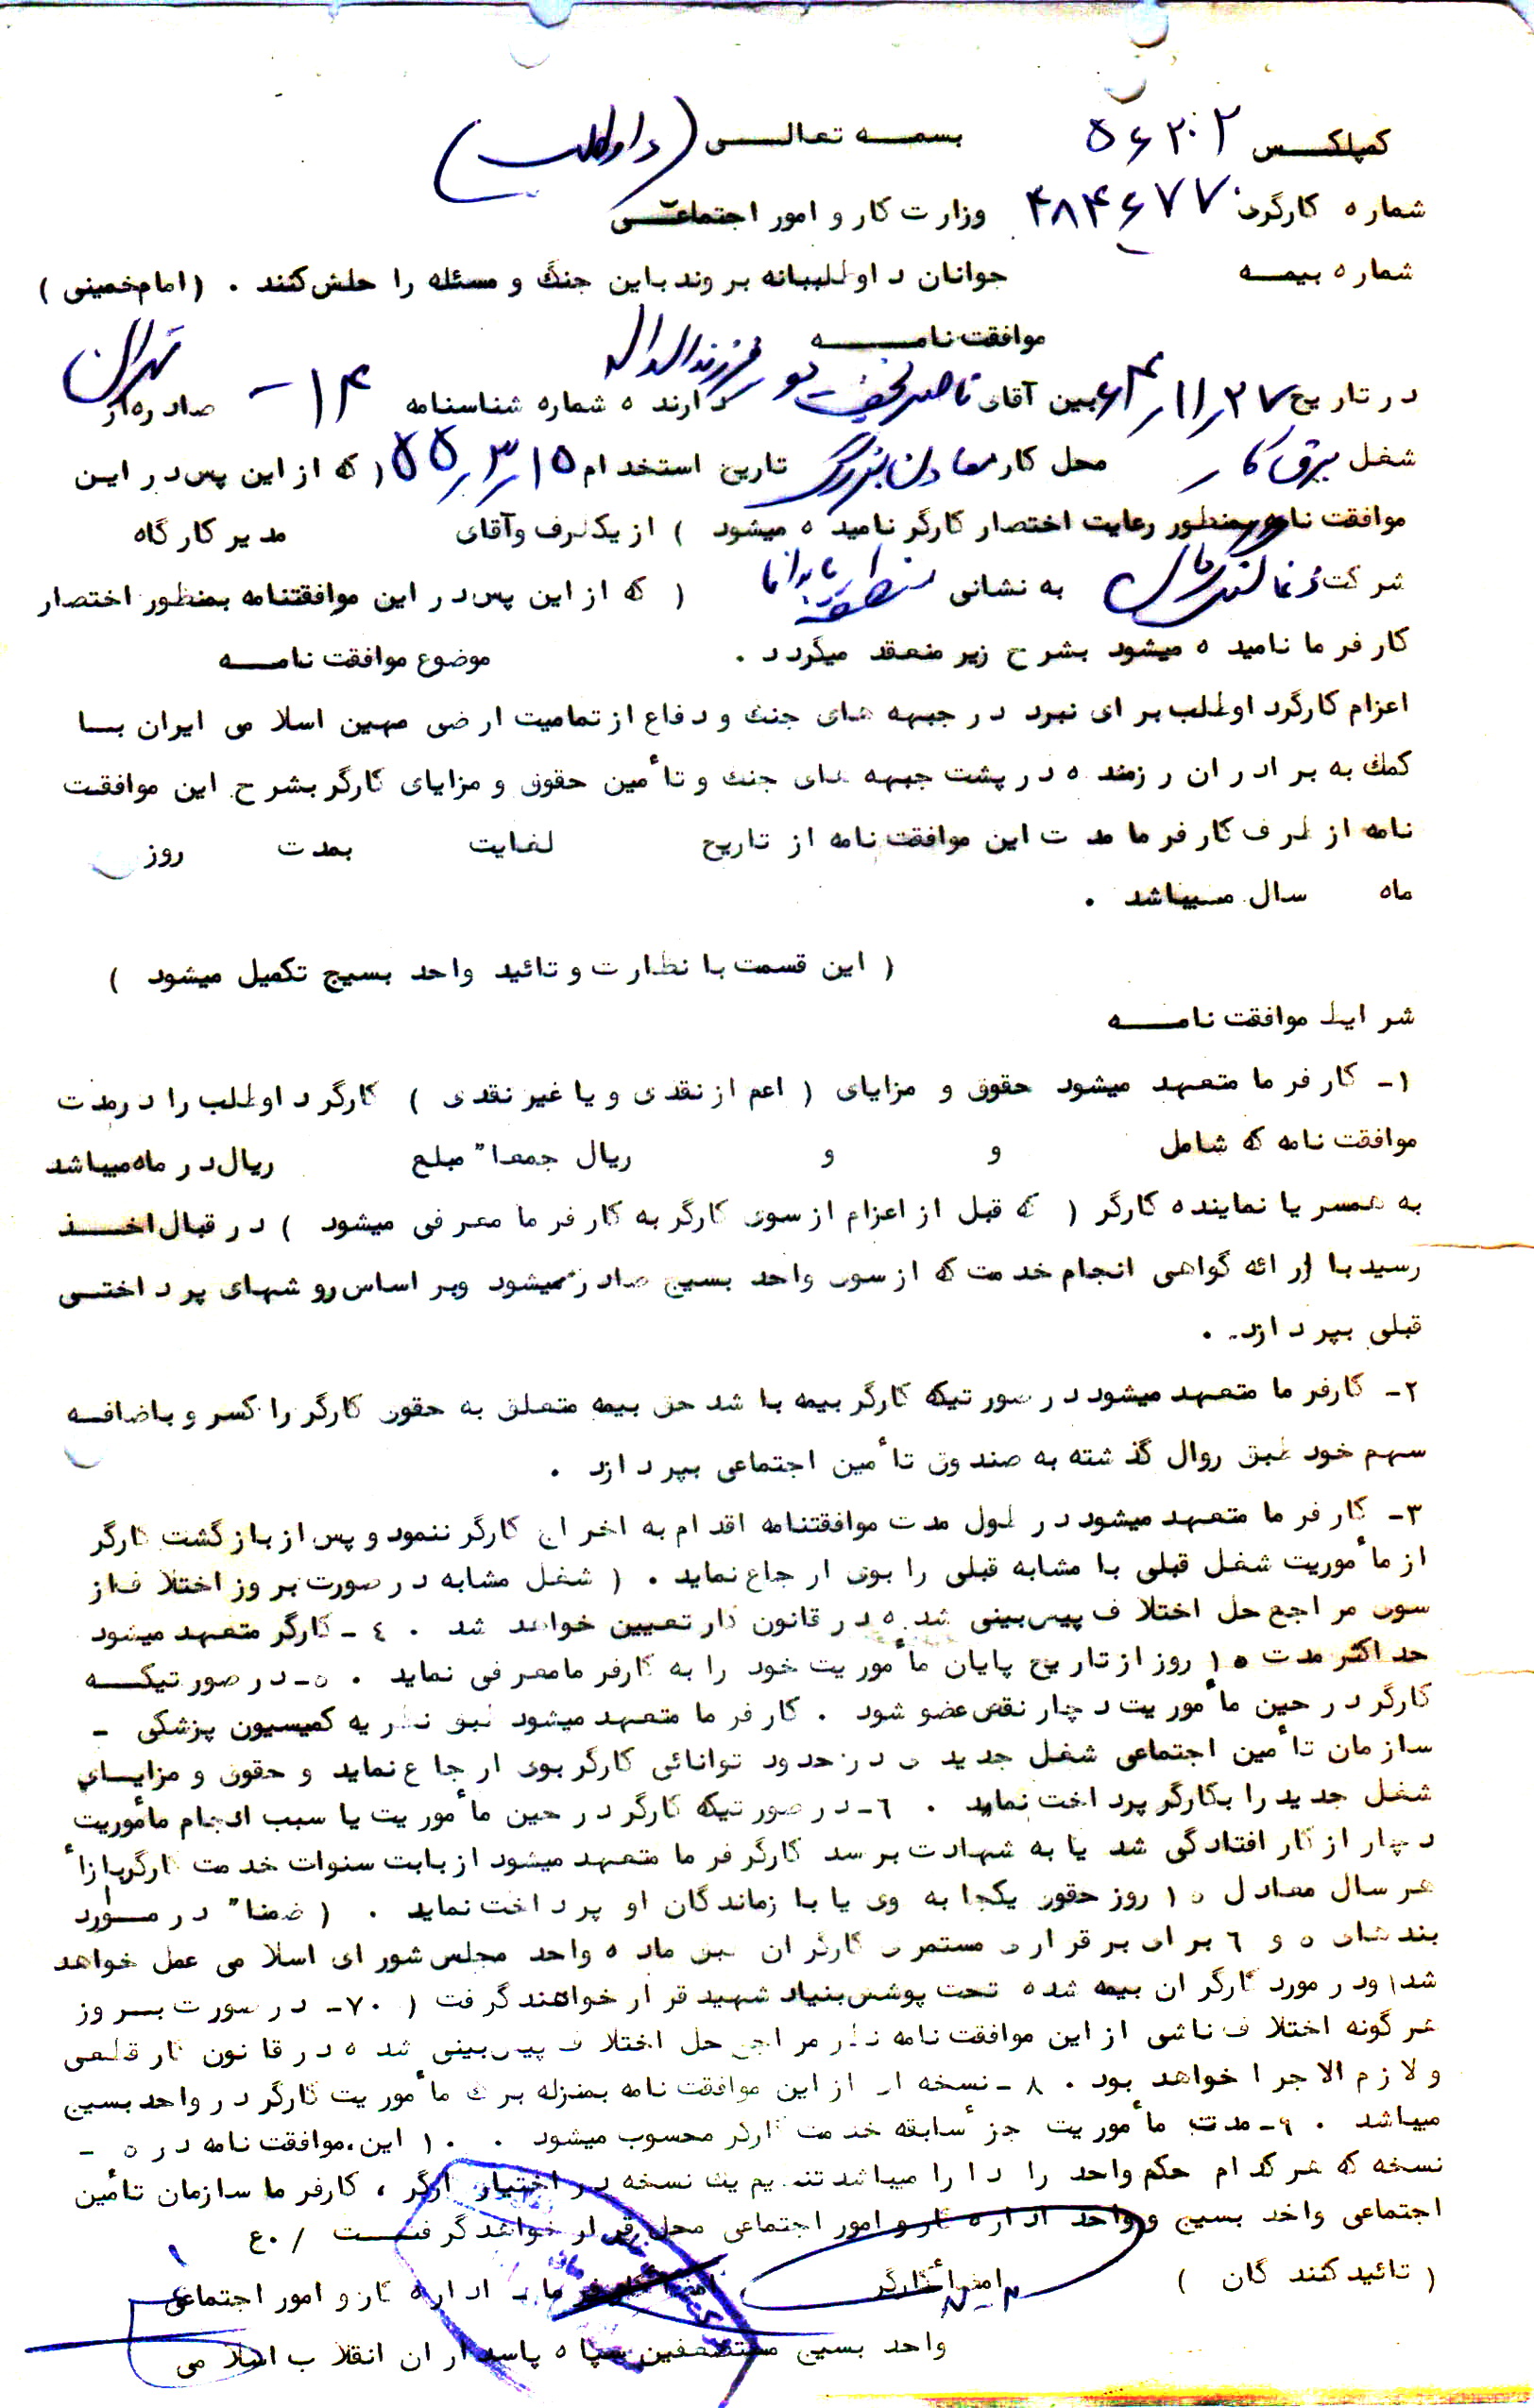 کمپلکس ۵۶۲۰۲ بسمه تعالی (داوطلب)
شماره کارگری ۴۸۴۶۷۷۰ وزارت کار و امور اجتماعی
شماره بیمه جوانان داوطلبانه بروند باین جنگ و مسئله را حلش کنند . (امام خمینی)
موافقت نامه
در تاریخ ۶۴/۱۱/۲۷ بین آقای ناصر نجفی پور فرزند اسداله دارنده شماره شناسنامه ۱۴ - صادره از تهران
شغل برق کار محل کار معادن بزرگ تاریخ استخدام ۵۵/۳/۱۵ ( که از این پس در این
موافقت نامه بمنظور رعایت اختصار کارگر نامیده میشود ) از یکطرف و آقای مدیر کارگاه
شرکت به نشانی ( که از این پس در این موافقتنامه بمنظور اختصار
کارفرما نامیده میشود بشرح زیر منعقد میگردد . موضوع موافقت نامه
اعزام کارگر داوطلب برای نبرد در جبهه های جنگ و دفاع از تمامیت ارضی میهن اسلامی ایران با
کمک به برادران رزمنده در پشت جبهه های جنگ و تأمین حقوق و مزایای کارگر بشرح این موافقت
نامه از طرف کارفرما مدت این موافقت نامه از تاریخ لغایت بمدت روز
ماه سال میباشد .
( این قسمت با نظارت و تائید واحد بسیج تکمیل میشود )
شرایط موافقت نامه
۱- کارفرما متعهد میشود حقوق و مزایای ( اعم از نقدی و یا غیر نقدی ) کارگر داوطلب را در مدت
موافقت نامه که شامل و و ریال جمعا" مبلغ ریال در ماه میباشد
به همسر یا نماینده کارگر ( که قبل از اعزام از سوی کارگر به کارفرما معرفی میشود ) در قبال اخذ
رسید با ارائه گواهی انجام خدمت که از سوی واحد بسیج صادر میشود وبر اساس روشهای پرداختی
قبلی بپردازد .
۲- کارفرما متعهد میشود در صورتیکه کارگر بیمه باشد حق بیمه متعلق به حقوق کارگر را کسر و باضافه
سهم خود طبق روال گذشته به صندوق تأمین اجتماعی بپردازد .
۳- کارفرما متعهد میشود در طول مدت موافقتنامه اقدام به اخراج کارگر ننمود و پس از بازگشت کارگر
از مأموریت شغل قبلی یا مشابه قبلی را بوی ارجاع نماید . ( شغل مشابه در صورت بروز اختلاف از
سوی مراجع حل اختلاف پیش بینی شده در قانون کار تعیین خواهد شد . ٤- کارگر متعهد میشود
حداکثر مدت ۱۵ روز از تاریخ پایان مأموریت خود را به کارفرما معرفی نماید . ۵- در صورتیکه
کارگر در حین مأموریت دچار نقص عضو شود . کارفرما متعهد میشود طبق نظریه کمیسیون پزشکی -
سازمان تأمین اجتماعی شغل جدیدی در حدود توانائی کارگر بوی ارجاع نماید و حقوق و مزایای
شغل جدید را بکارگر پرداخت نماید . ٦- در صورتیکه کارگر در حین مأموریت یا سبب انجام مأموریت
دچار از کار افتادگی شد یا به شهادت برسد کارگر فرما متعهد میشود از بابت سنوات خدمت کارگر بازأ
هر سال معادل ۱۵ روز حقوق یکجا به وی یا بازماندگان او پرداخت نماید . ( ضمنا" در مورد
بندهای ۵ و ٦ برای برقراری مستمری کارگران طبق ماده واحد مجلس شورای اسلامی عمل خواهد
شد ودر مورد کارگران بیمه شده تحت پوشش بنیاد شهید قرار خواهند گرفت ) ۷۰- در صورت بروز
هر گونه اختلاف ناشی از این موافقت نامه نظر مراجع حل اختلاف پیش بینی شده در قانون کار قطعی
و لازم الاجرا خواهد بود . ۸- نسخه ای از این موافقت نامه بمنزله برگ مأموریت کارگر در واحد بسیج
میباشد . ۹- مدت مأموریت جزأ سابقه خدمت کارگر محسوب میشود . ( این موافقت نامه در ۵ -
نسخه که هر کدام حکم واحد را دارا میباشد تنظیم یک نسخه در اختیار کارگر ، کارفرما سازمان تأمین
اجتماعی واحد بسیج و واحد اداره کار و امور اجتماعی محل قرار خواهد گرفت / ع۰
( تائید کنندگان ) امضأ کارگر امضأ کارفرما - اداره کار و امور اجتماعی
واحد بسیج مستضعفین سپاه پاسداران انقلاب اسلامی